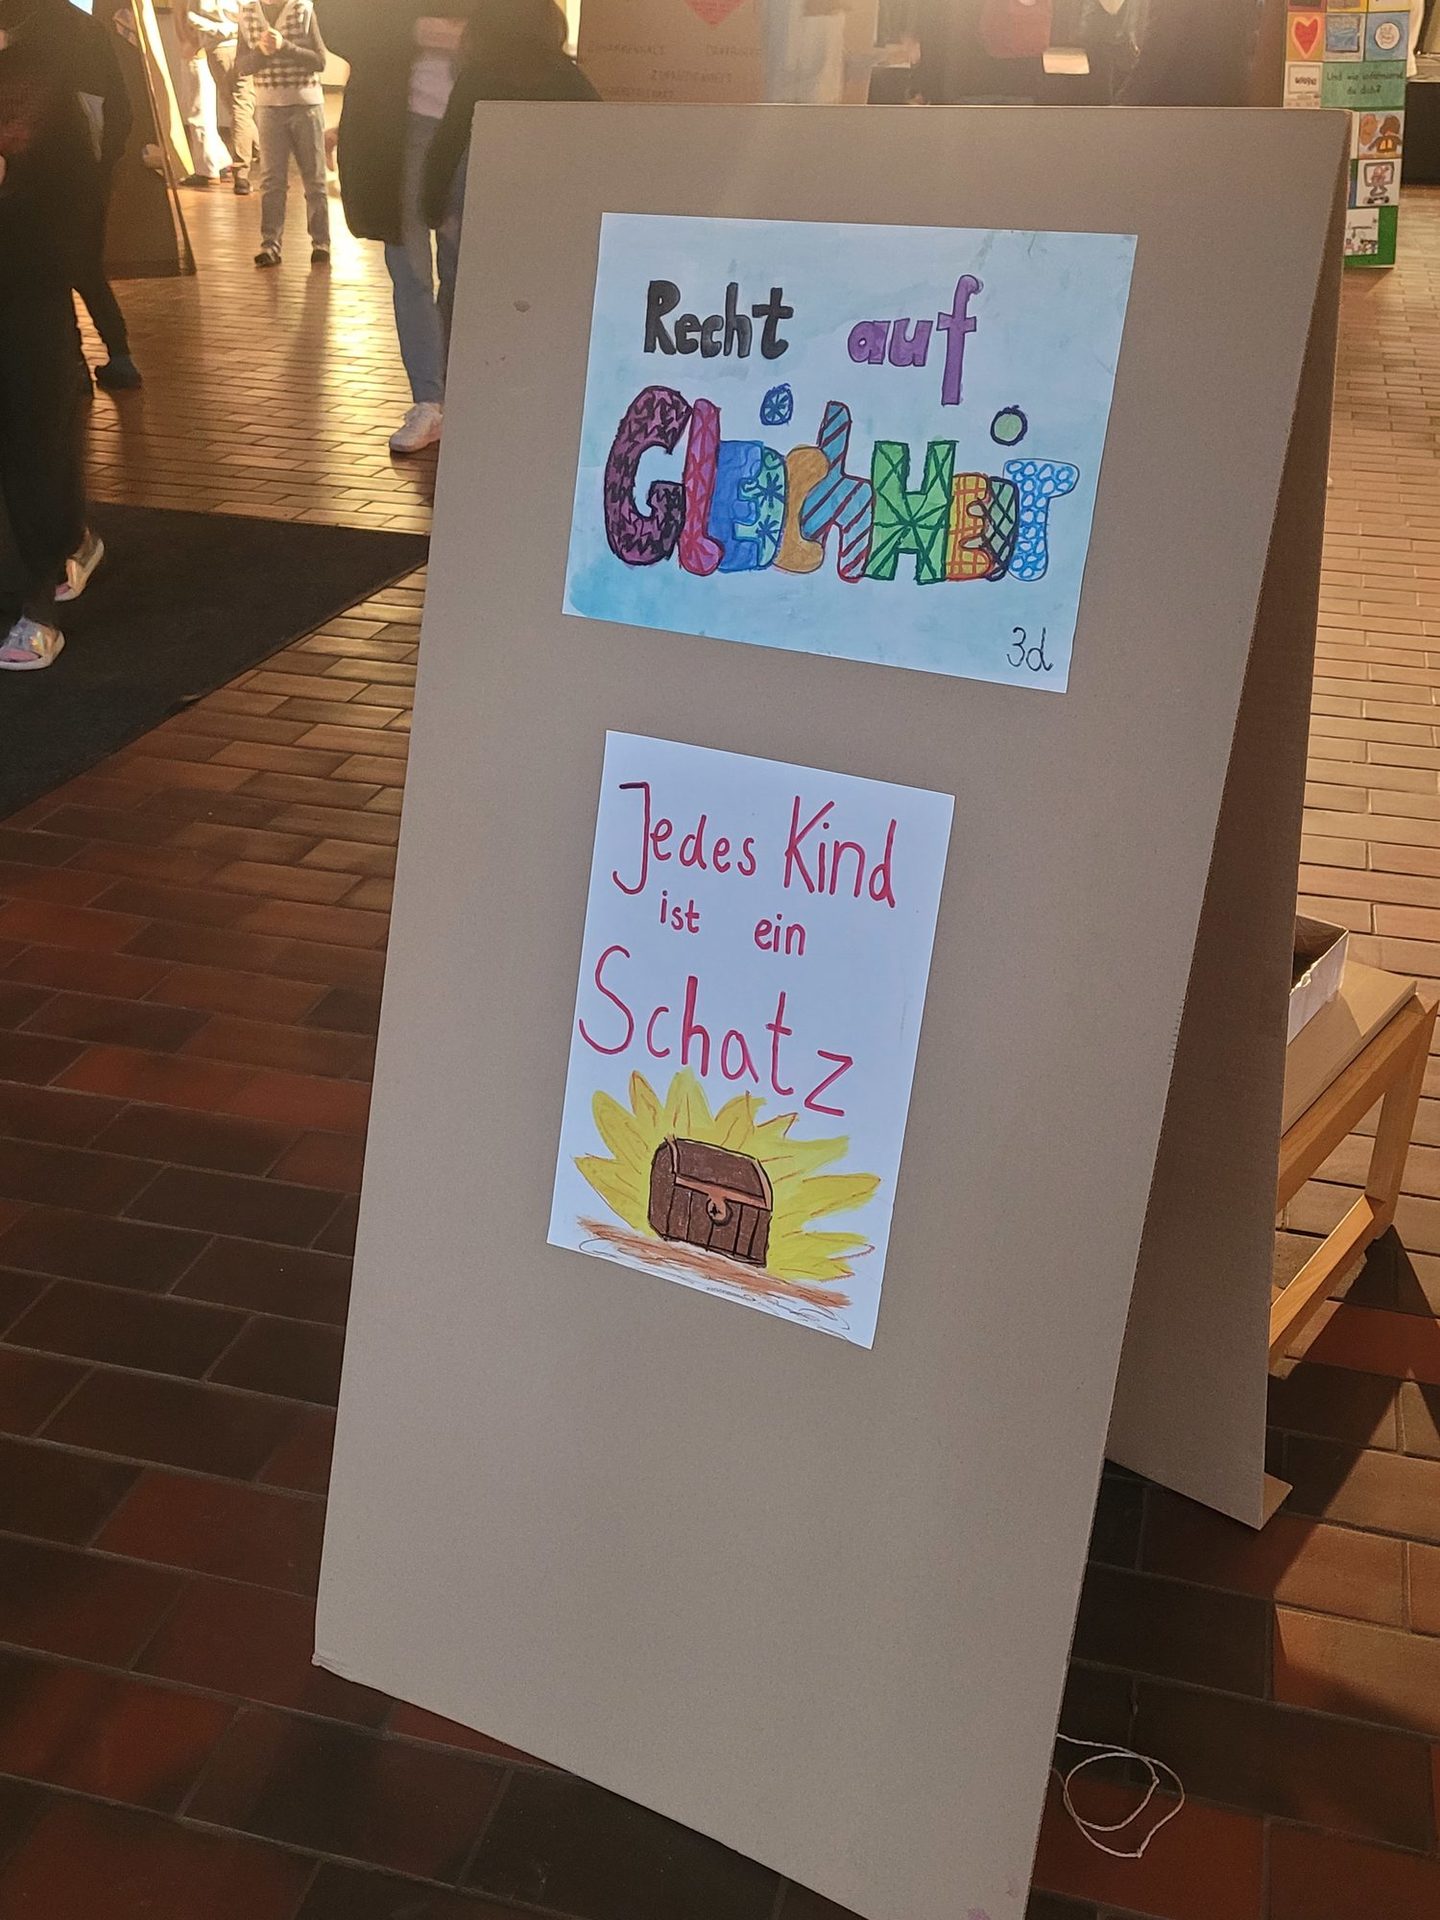 Recht auf
GLEiCHHEiT
3d
Jedes Kind
ist ein
Schatz
Und wie informierst
du dich?